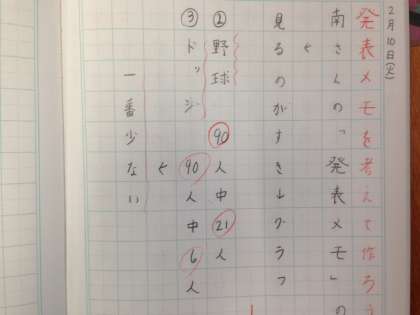 2月10日(火)
発表メモを考えて作ろう
南さんの「発表メモ」の
見るのがすき↓グラフ
②野球 90人中21人
③ドッジ 90人中6人
一番少ない